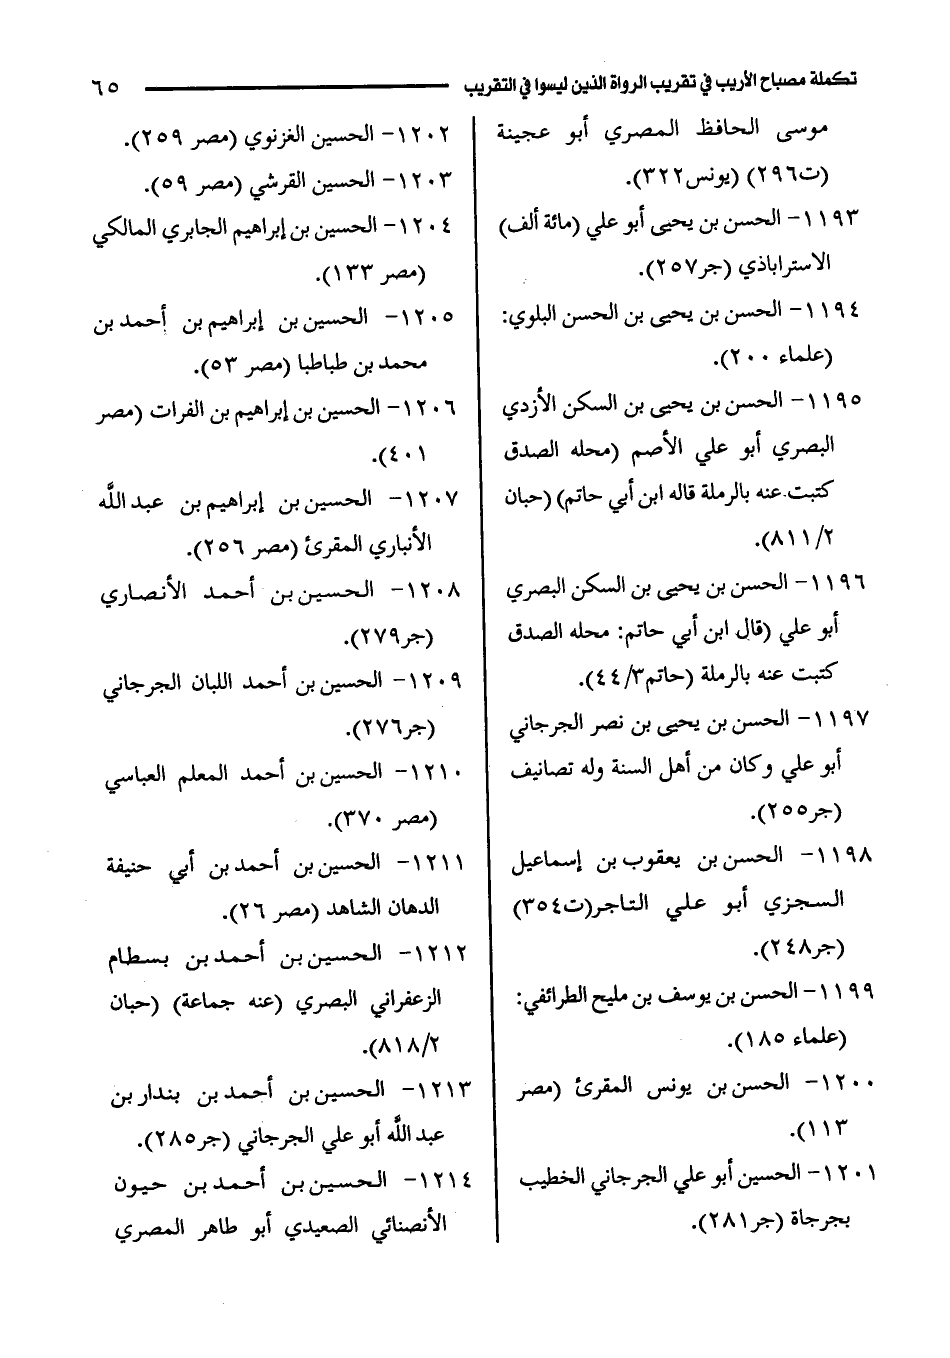 تكملة مصباح الأريب في تقريب الرواة الذين ليسوا في التقريب ٦٥
موسى الحافظ المصري أبو عجينة
(ت٢٩٦) (يونس٣٢٢).
١١٩٣- الحسن بن يحيى أبو علي (مائة ألف)
الاستراباذي (جر٢٥٧).
١١٩٤- الحسن بن يحيى بن الحسن البلوي:
(علماء ٢٠٠).
١١٩٥- الحسن بن يحيى بن السكن الأزدي
البصري أبو علي الأصم (محله الصدق
كتبت عنه بالرملة قاله ابن أبي حاتم) (حبان
٨١١/٢).
١١٩٦- الحسن بن يحيى بن السكن البصري
أبو علي (قال ابن أبي حاتم: محله الصدق
كتبت عنه بالرملة (حاتم٤٤/٣).
١١٩٧- الحسن بن يحيى بن نصر الجرجاني
أبو علي وكان من أهل السنة وله تصانيف
(جر٢٥٥).
١١٩٨- الحسن بن يعقوب بن إسماعيل
السجزي أبو علي التاجر(ت٣٥٤)
(جر٢٤٨).
١١٩٩- الحسن بن يوسف بن مليح الطرائفي:
(علماء ١٨٥).
١٢٠٠- الحسن بن يونس المقرئ (مصر
١١٣).
١٢٠١- الحسين أبو علي الجرجاني الخطيب
بجرجاة (جر٢٨١).
١٢٠٢- الحسين الغزنوي (مصر ٢٥٩).
١٢٠٣- الحسين القرشي (مصر ٥٩).
١٢٠٤- الحسين بن إبراهيم الجابري المالكي
(مصر ١٣٣).
١٢٠٥- الحسين بن إبراهيم بن أحمد بن
محمد بن طباطبا (مصر ٥٣).
١٢٠٦- الحسين بن إبراهيم بن الفرات (مصر
٤٠١).
١٢٠٧- الحسين بن إبراهيم بن عبد اللَّه
الأنباري المقرئ (مصر ٢٥٦).
١٢٠٨- الحسين بن أحمد الأنصاري
(جر٢٧٩).
١٢٠٩- الحسين بن أحمد اللبان الجرجاني
(جر٢٧٦).
١٢١٠- الحسين بن أحمد المعلم العباسي
(مصر ٣٧٠).
١٢١١- الحسين بن أحمد بن أبي حنيفة
الدهان الشاهد (مصر ٢٦).
١٢١٢- الحسين بن أحمد بن بسطام
الزعفراني البصري (عنه جماعة) (حبان
٨١٨/٢).
١٢١٣- الحسين بن أحمد بن بندار بن
عبد اللَّه أبو علي الجرجاني (جر٢٨٥).
١٢١٤- الحسين بن أحمد بن حيون
الأنصنائي الصعيدي أبو طاهر المصري